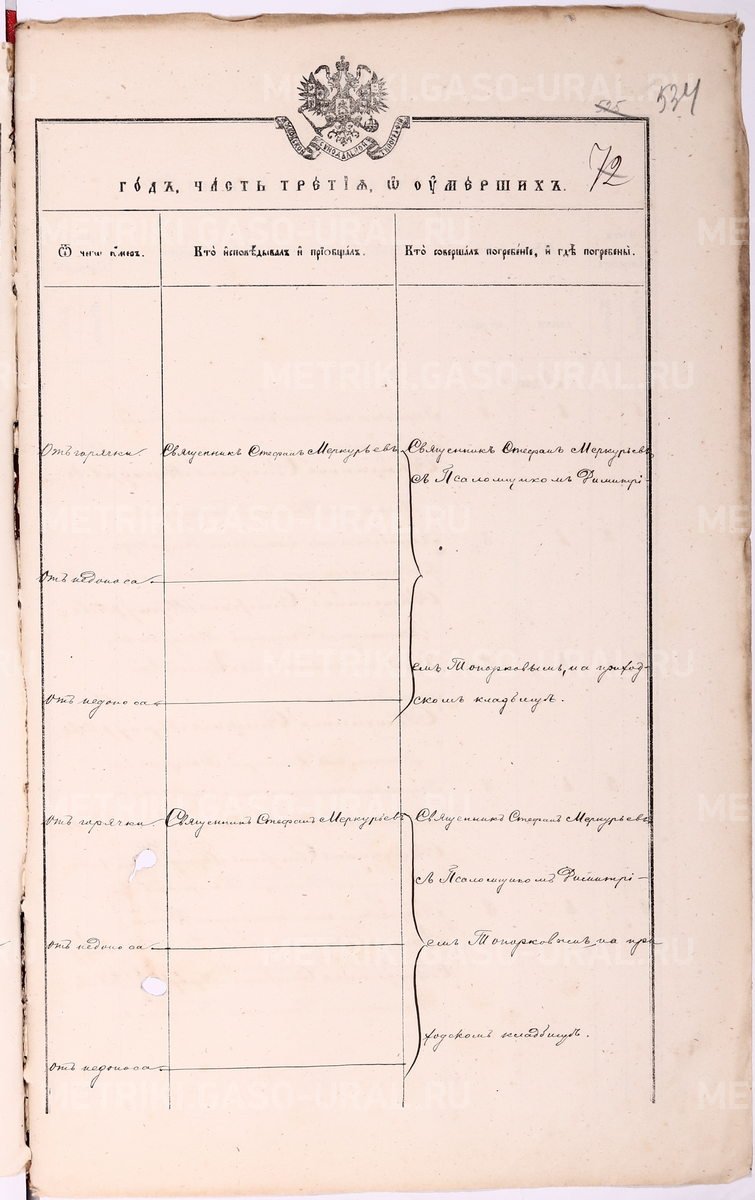 534
72
ГО́ДЪ, ЧА́СТЬ ТРЕ́ТІѦ, Ѡ҆ ОУ҆МЕ́РШИХЪ.
Ѿ чегѡ̀ ᲂу҆́меръ.
Кто̀ и҆сповѣ́дывалъ и҆ прїѡбща́лъ.
Кто̀ соверша́лъ погребе́нїе, и҆ гдѣ̀ погребены̀.
Отъ горячки.
Священникъ Стефанъ Меркурьевъ
Священникъ Стефанъ Меркурьевъ
съ Псаломщикомъ Димитрі-
Отъ недоноса
емъ Топорковымъ, на приход-
Отъ недоноса
скомъ кладбищѣ.
Отъ горячки
Священникъ Стефанъ Меркурьевъ
Священникъ Стефанъ Меркурьевъ
съ Псаломщикомъ Димитрі-
Отъ недоноса
емъ Топорковымъ на при
ходскомъ кладбищѣ.
Отъ недоноса
METRIKI.GASO-URAL.RU